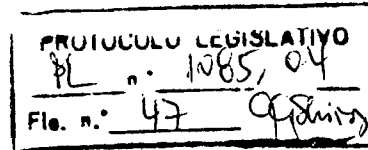 PROTOCOLO LEGISLATIVO
PL n.º 1085, 04
Fls. n.º 47